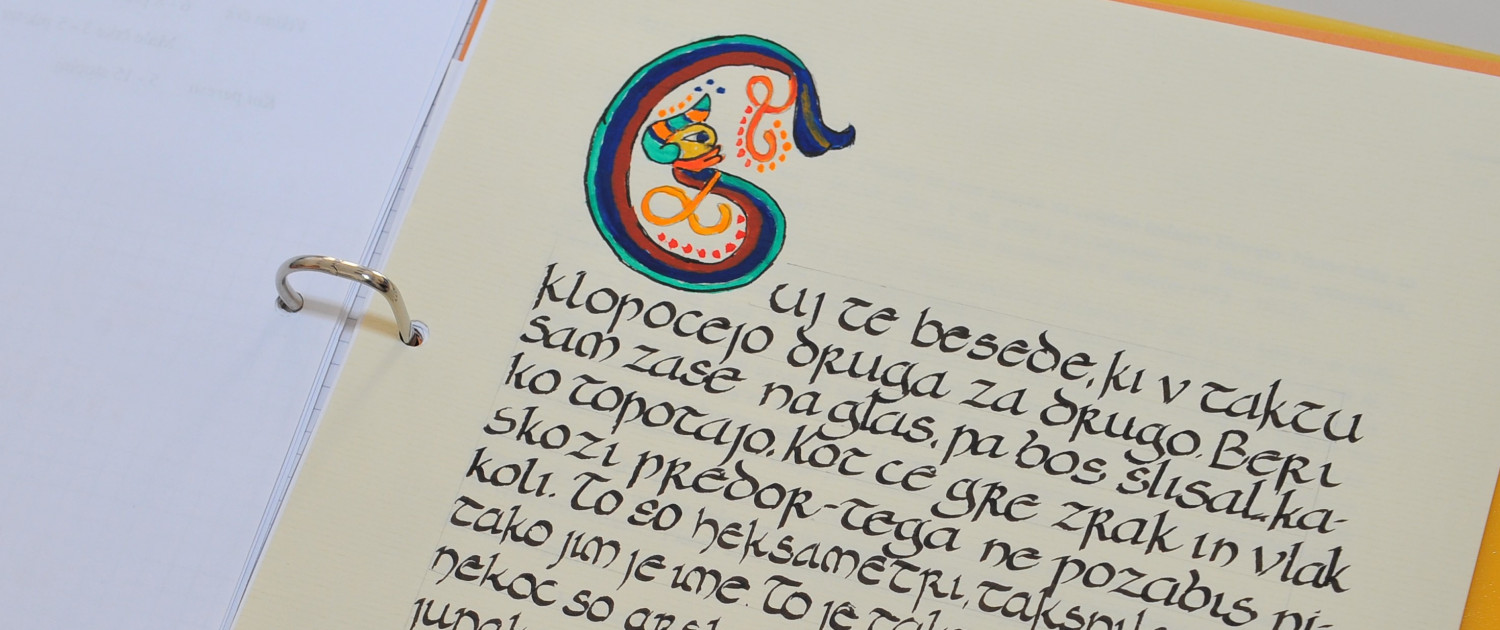 Čuj te besede, ki v taktu
klopocejo druga za drugo. Beri
sam zase na glas, pa bos slisal, ka-
ko topotajo. Kot ce gre zrak in vlak
skozi predor-tega ne pozabis ni-
koli. To so heksametri,
tako jim je ime. To je
nekoc so